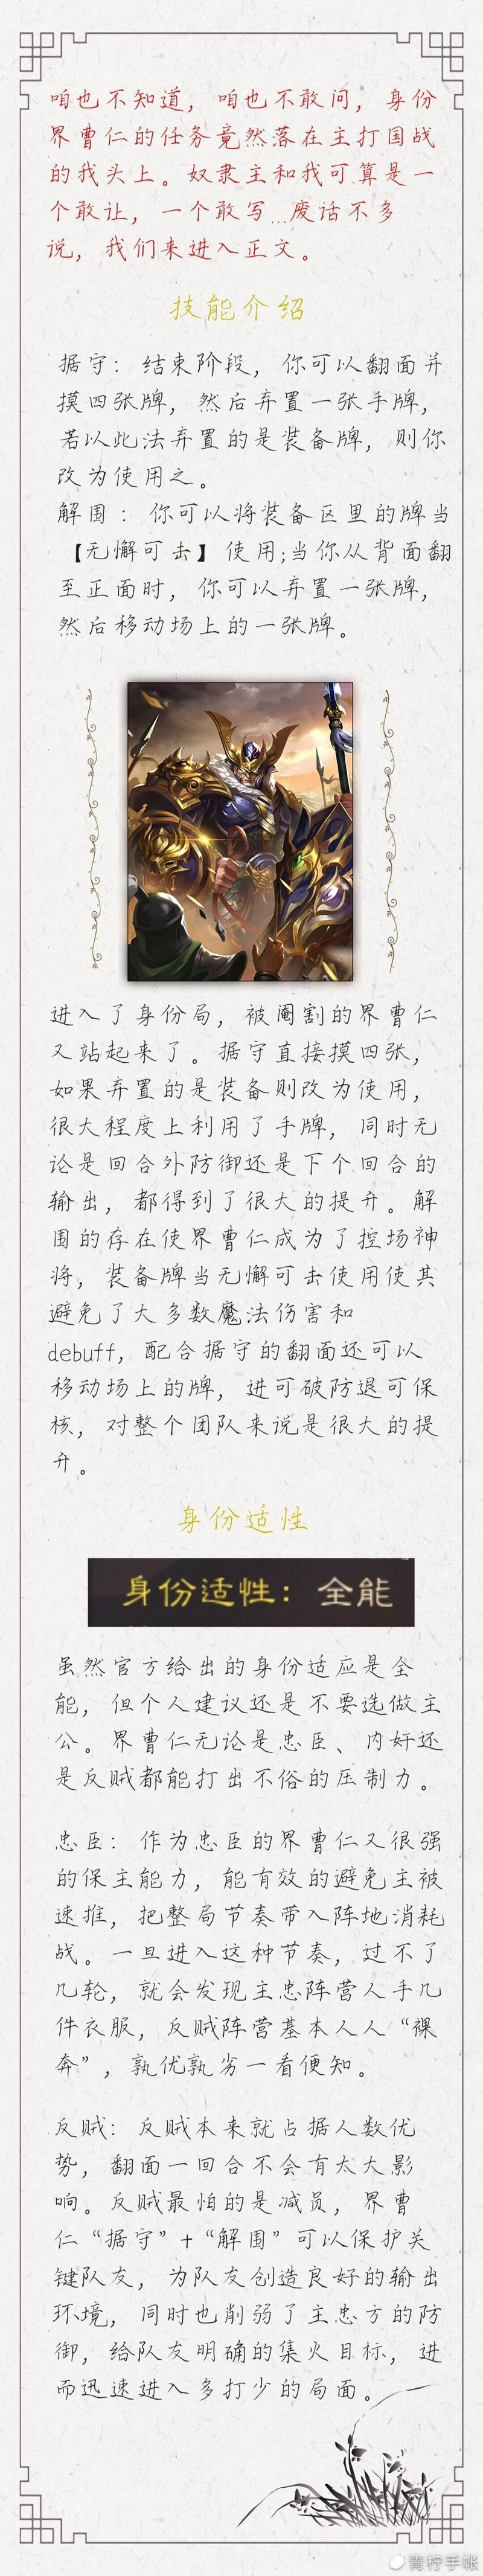 咱也不知道，咱也不敢问，身份
界曹仁的任务竟然落在主打国战
的我头上。奴隶主和我可算是一
个敢让，一个敢写...废话不多
说，我们来进入正文。
技能介绍
据守：结束阶段，你可以翻面并
摸四张牌，然后弃置一张手牌，
若以此法弃置的是装备牌，则你
改为使用之。
解围：你可以将装备区里的牌当
【无懈可击】使用;当你从背面翻
至正面时，你可以弃置一张牌，
然后移动场上的一张牌。
进入了身份局，被阉割的界曹仁
又站起来了。据守直接摸四张，
如果弃置的是装备则改为使用，
很大程度上利用了手牌，同时无
论是回合外防御还是下个回合的
输出，都得到了很大的提升。解
围的存在使界曹仁成为了控场神
将，装备牌当无懈可击使用使其
避免了大多数魔法伤害和
debuff，配合据守的翻面还可以
移动场上的牌，进可破防退可保
核，对整个团队来说是很大的提
升。
身份适性
身份适性：全能
虽然官方给出的身份适应是全
能，但个人建议还是不要选做主
公。界曹仁无论是忠臣、内奸还
是反贼都能打出不俗的压制力。
忠臣：作为忠臣的界曹仁又很强
的保主能力，能有效的避免主被
速推，把整局节奏带入阵地消耗
战。一旦进入这种节奏，过不了
几轮，就会发现主忠阵营人手几
件衣服，反贼阵营基本人人“裸
奔”，孰优孰劣一看便知。
反贼：反贼本来就占据人数优
势，翻面一回合不会有太大影
响。反贼最怕的是减员，界曹
仁“据守”+“解围”可以保护关
键队友，为队友创造良好的输出
环境，同时也削弱了主忠方的防
御，给队友明确的集火目标，进
而迅速进入多打少的局面。
青柠手帐